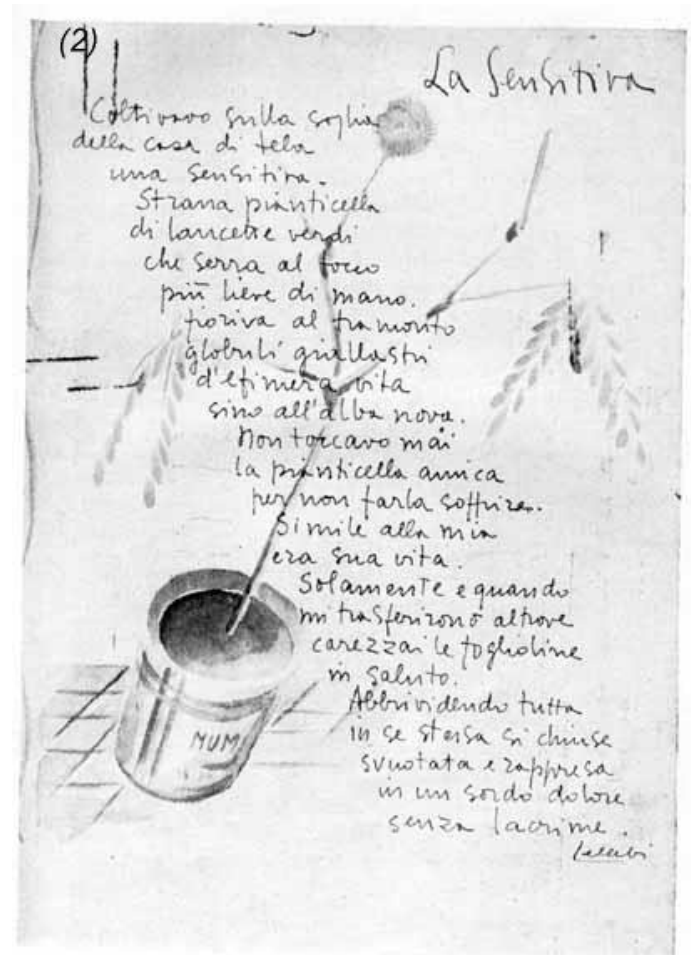 (2)
La Sensitiva
Coltivavo sulla soglia
della casa di tela
una sensitiva.
Strana pianticella
di lancette verdi
che serra al tocco
più lieve di mano.
fioriva al tramonto
globuli giallastri
d'efimera vita
sino all'alba nova.
Non toccavo mai
la pianticella amica
per non farla soffrire.
Simile alla mia
era sua vita.
Solamente e quando
mi trasferirono altrove
carezzai le foglioline
in saluto.
Abbrividendo tutta
in se stessa si chiuse
svuotata e rappresa
in un sordo dolore
senza lacrime.
MUM